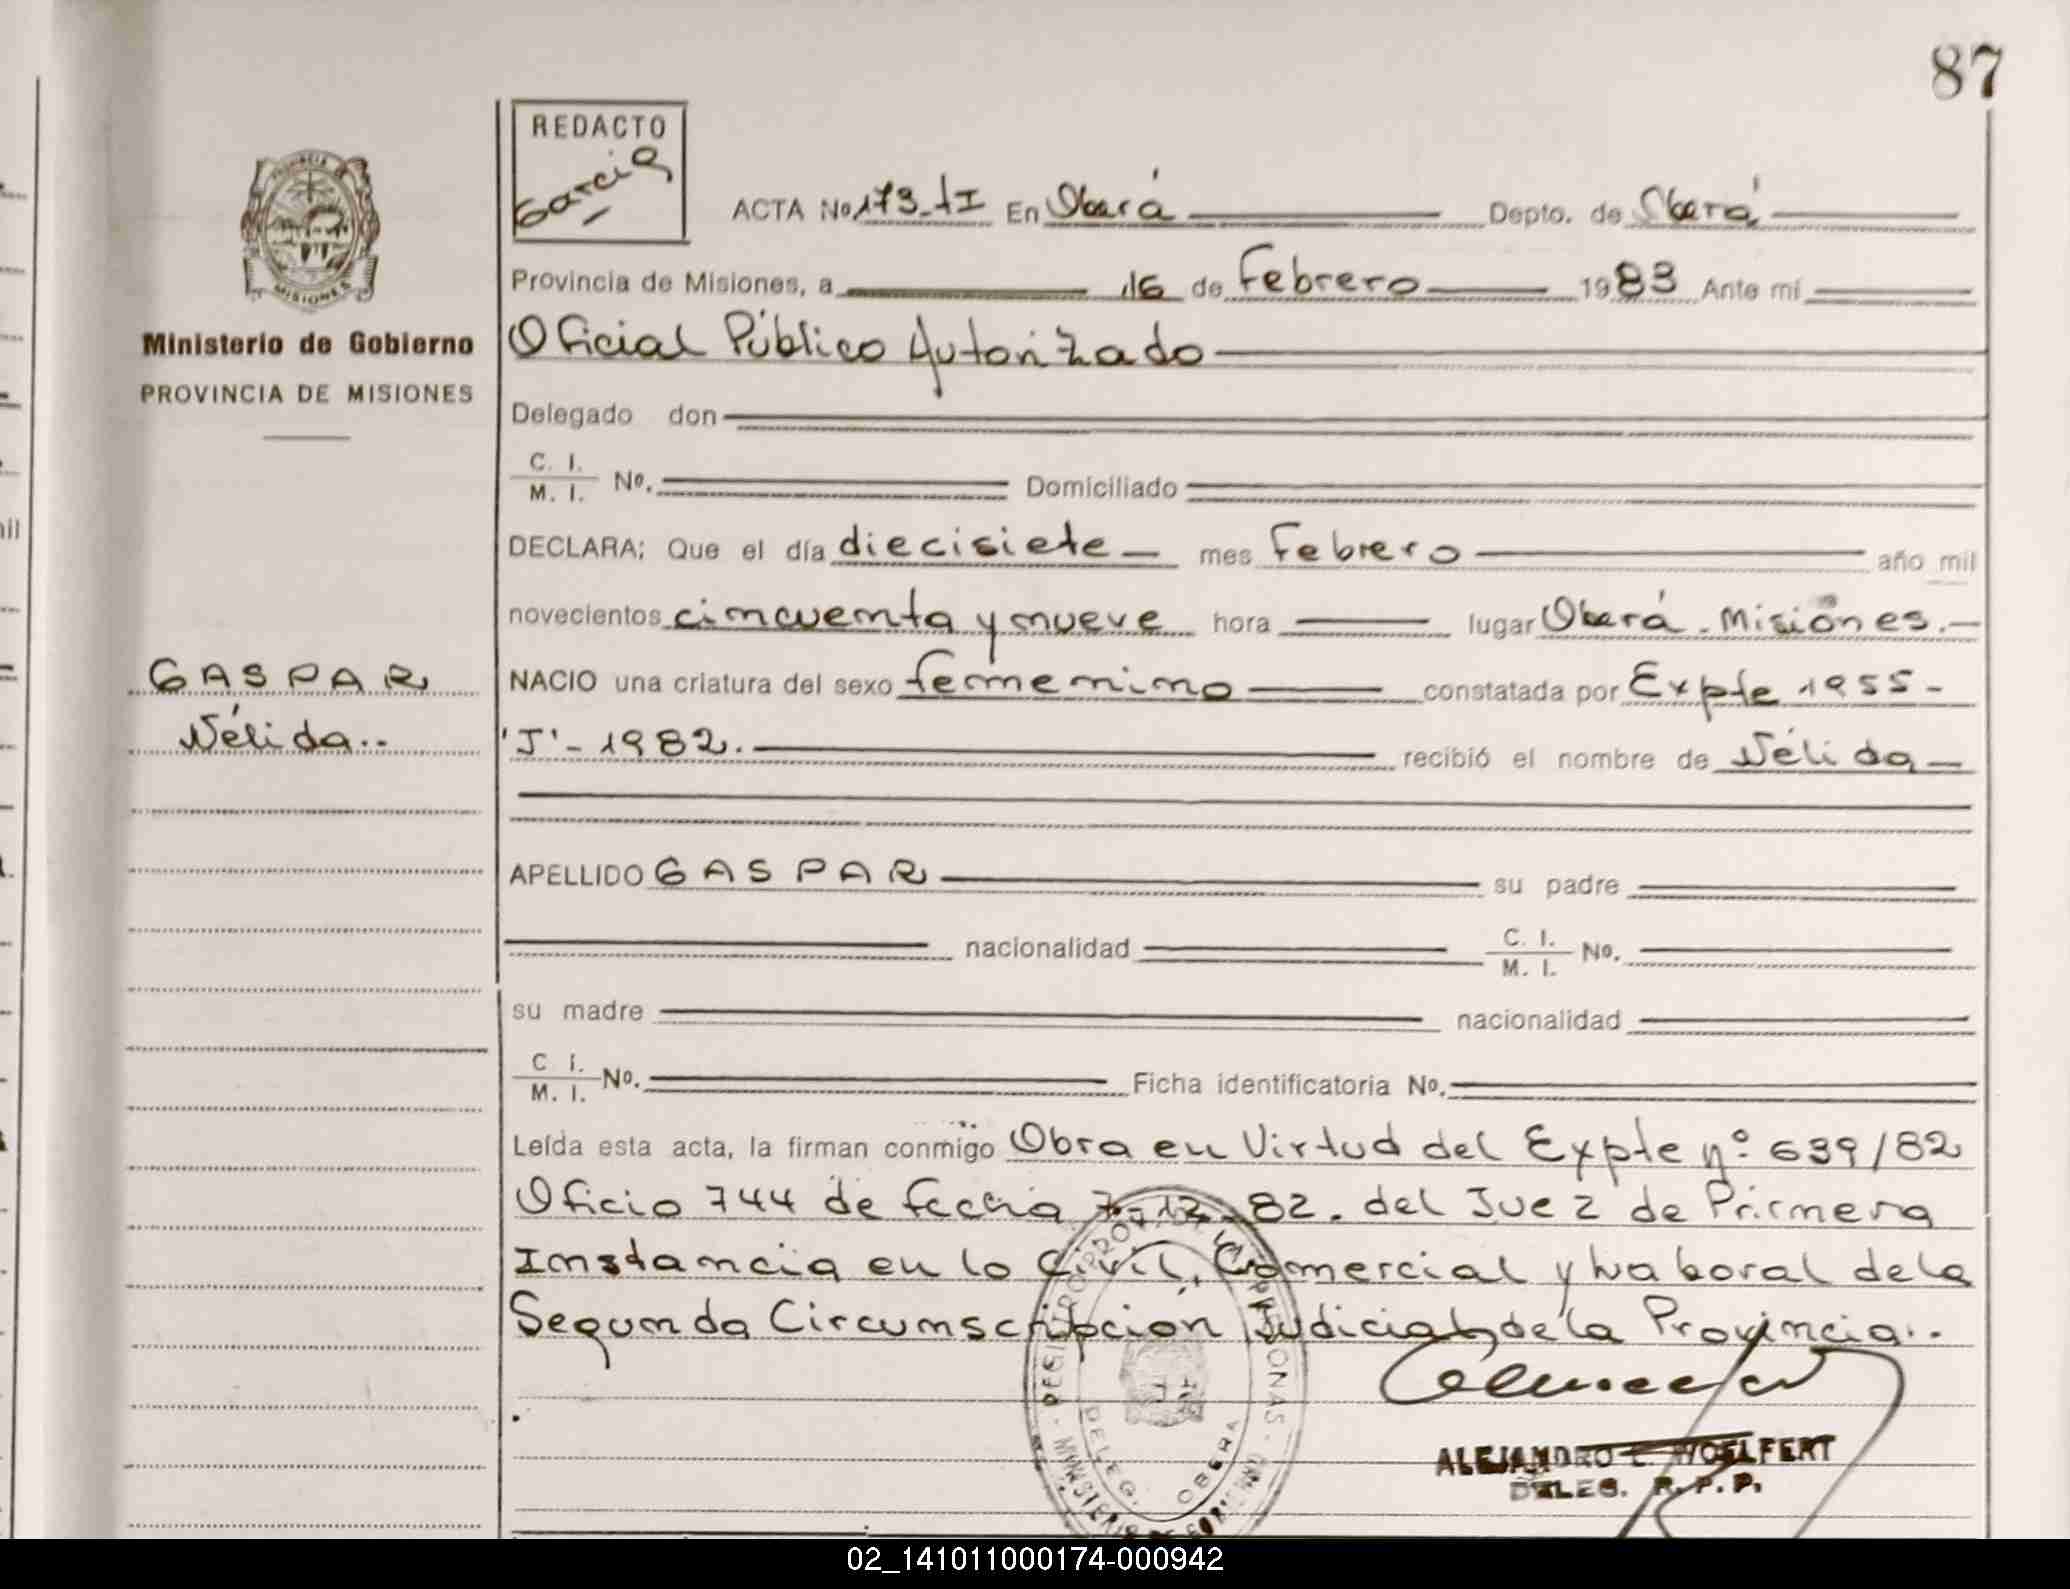 87
REDACTO
Garcia
ACTA No 173-tI En Oberá Depto. de Oberá
Provincia de Misiones, a 16 de Febrero 1983 Ante mí
PROVINCIA
MISIONES
Ministerio de Gobierno
PROVINCIA DE MISIONES
Oficial Público Autorizado
Delegado don
C. I.
M. I. No. Domiciliado
DECLARA; Que el día diecisiete mes Febrero año mil
novecientos cincuenta y nueve hora lugar Oberá - Misiones.-
GASPAR
Nélida..
NACIO una criatura del sexo femenino constatada por Expte 1955-
'J'-1982. recibió el nombre de Nélida
APELLIDO GASPAR su padre
nacionalidad C. I.
M. I. No.
su madre nacionalidad
C I.
M. I. No. Ficha identificatoria No.
Leída esta acta, la firman conmigo Obra en Virtud del Expte nº 639/82
Oficio 744 de fecha 7-12-82. del Juez de Primera
Instancia en lo Civil, Comercial y Laboral de la
Segunda Circunscripción Judicial de la Provincia..
DELEG. OBERA
ALEJANDRO E. WOELFERT
DELEG. R.P.P.
02_141011000174-000942